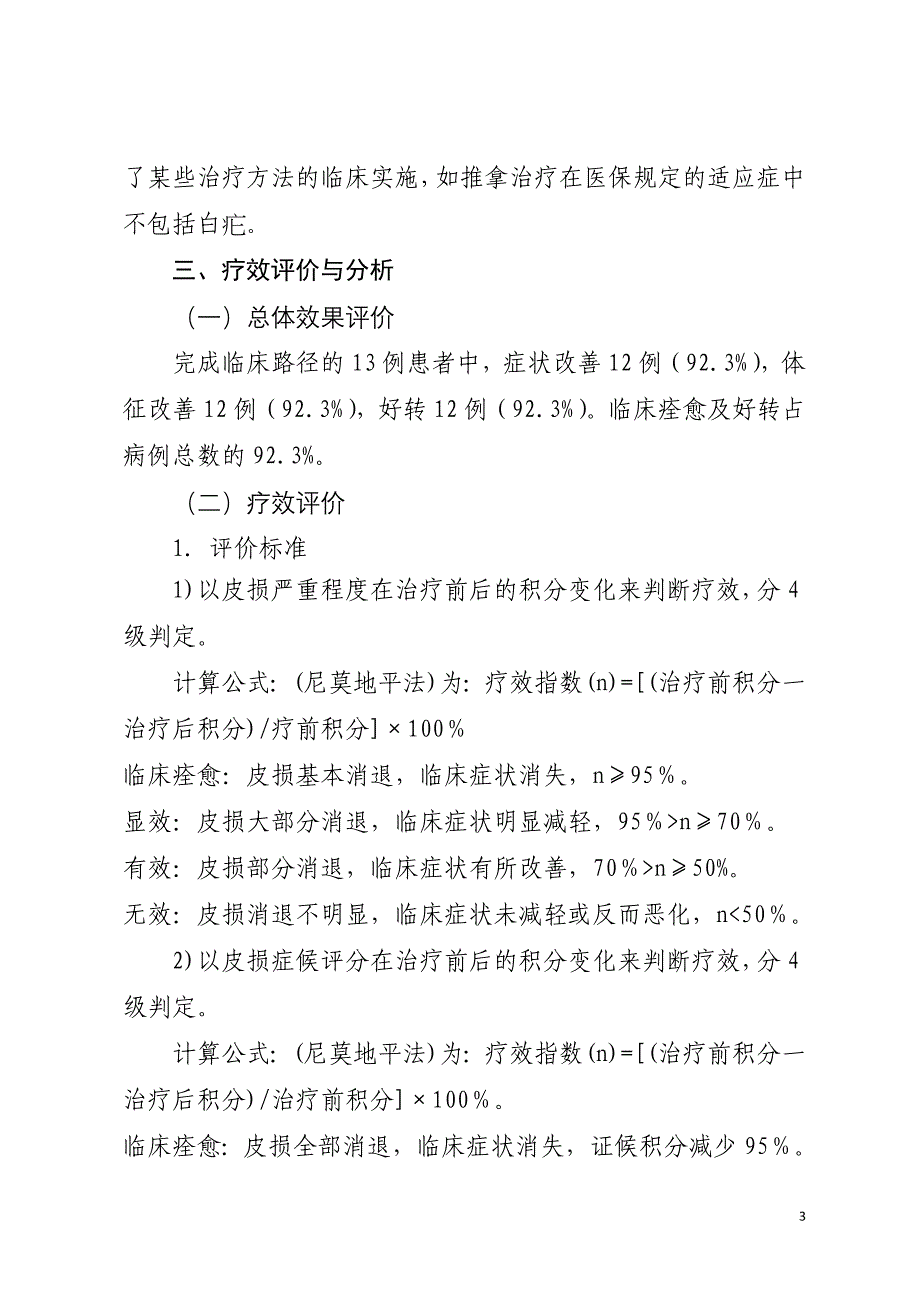 了某些治疗方法的临床实施，如推拿治疗在医保规定的适应症中
不包括白疕。
三、疗效评价与分析
（一）总体效果评价
完成临床路径的 13 例患者中，症状改善 12 例（92.3%），体
征改善 12 例（92.3%），好转 12 例（92.3%）。临床痊愈及好转占
病例总数的 92.3%。
（二）疗效评价
1. 评价标准
1)以皮损严重程度在治疗前后的积分变化来判断疗效，分 4
级判定。
计算公式：(尼莫地平法)为：疗效指数(n)=[(治疗前积分一
治疗后积分)/疗前积分]×100％
临床痊愈：皮损基本消退，临床症状消失，n≥95％。
显效：皮损大部分消退，临床症状明显减轻，95％>n≥70％。
有效：皮损部分消退，临床症状有所改善，70％>n≥50%。
无效：皮损消退不明显，临床症状未减轻或反而恶化，n<50％。
2)以皮损症候评分在治疗前后的积分变化来判断疗效，分 4
级判定。
计算公式：(尼莫地平法)为：疗效指数(n)=[(治疗前积分一
治疗后积分)/治疗前积分]×100％。
临床痊愈：皮损全部消退，临床症状消失，证候积分减少 95％。
3